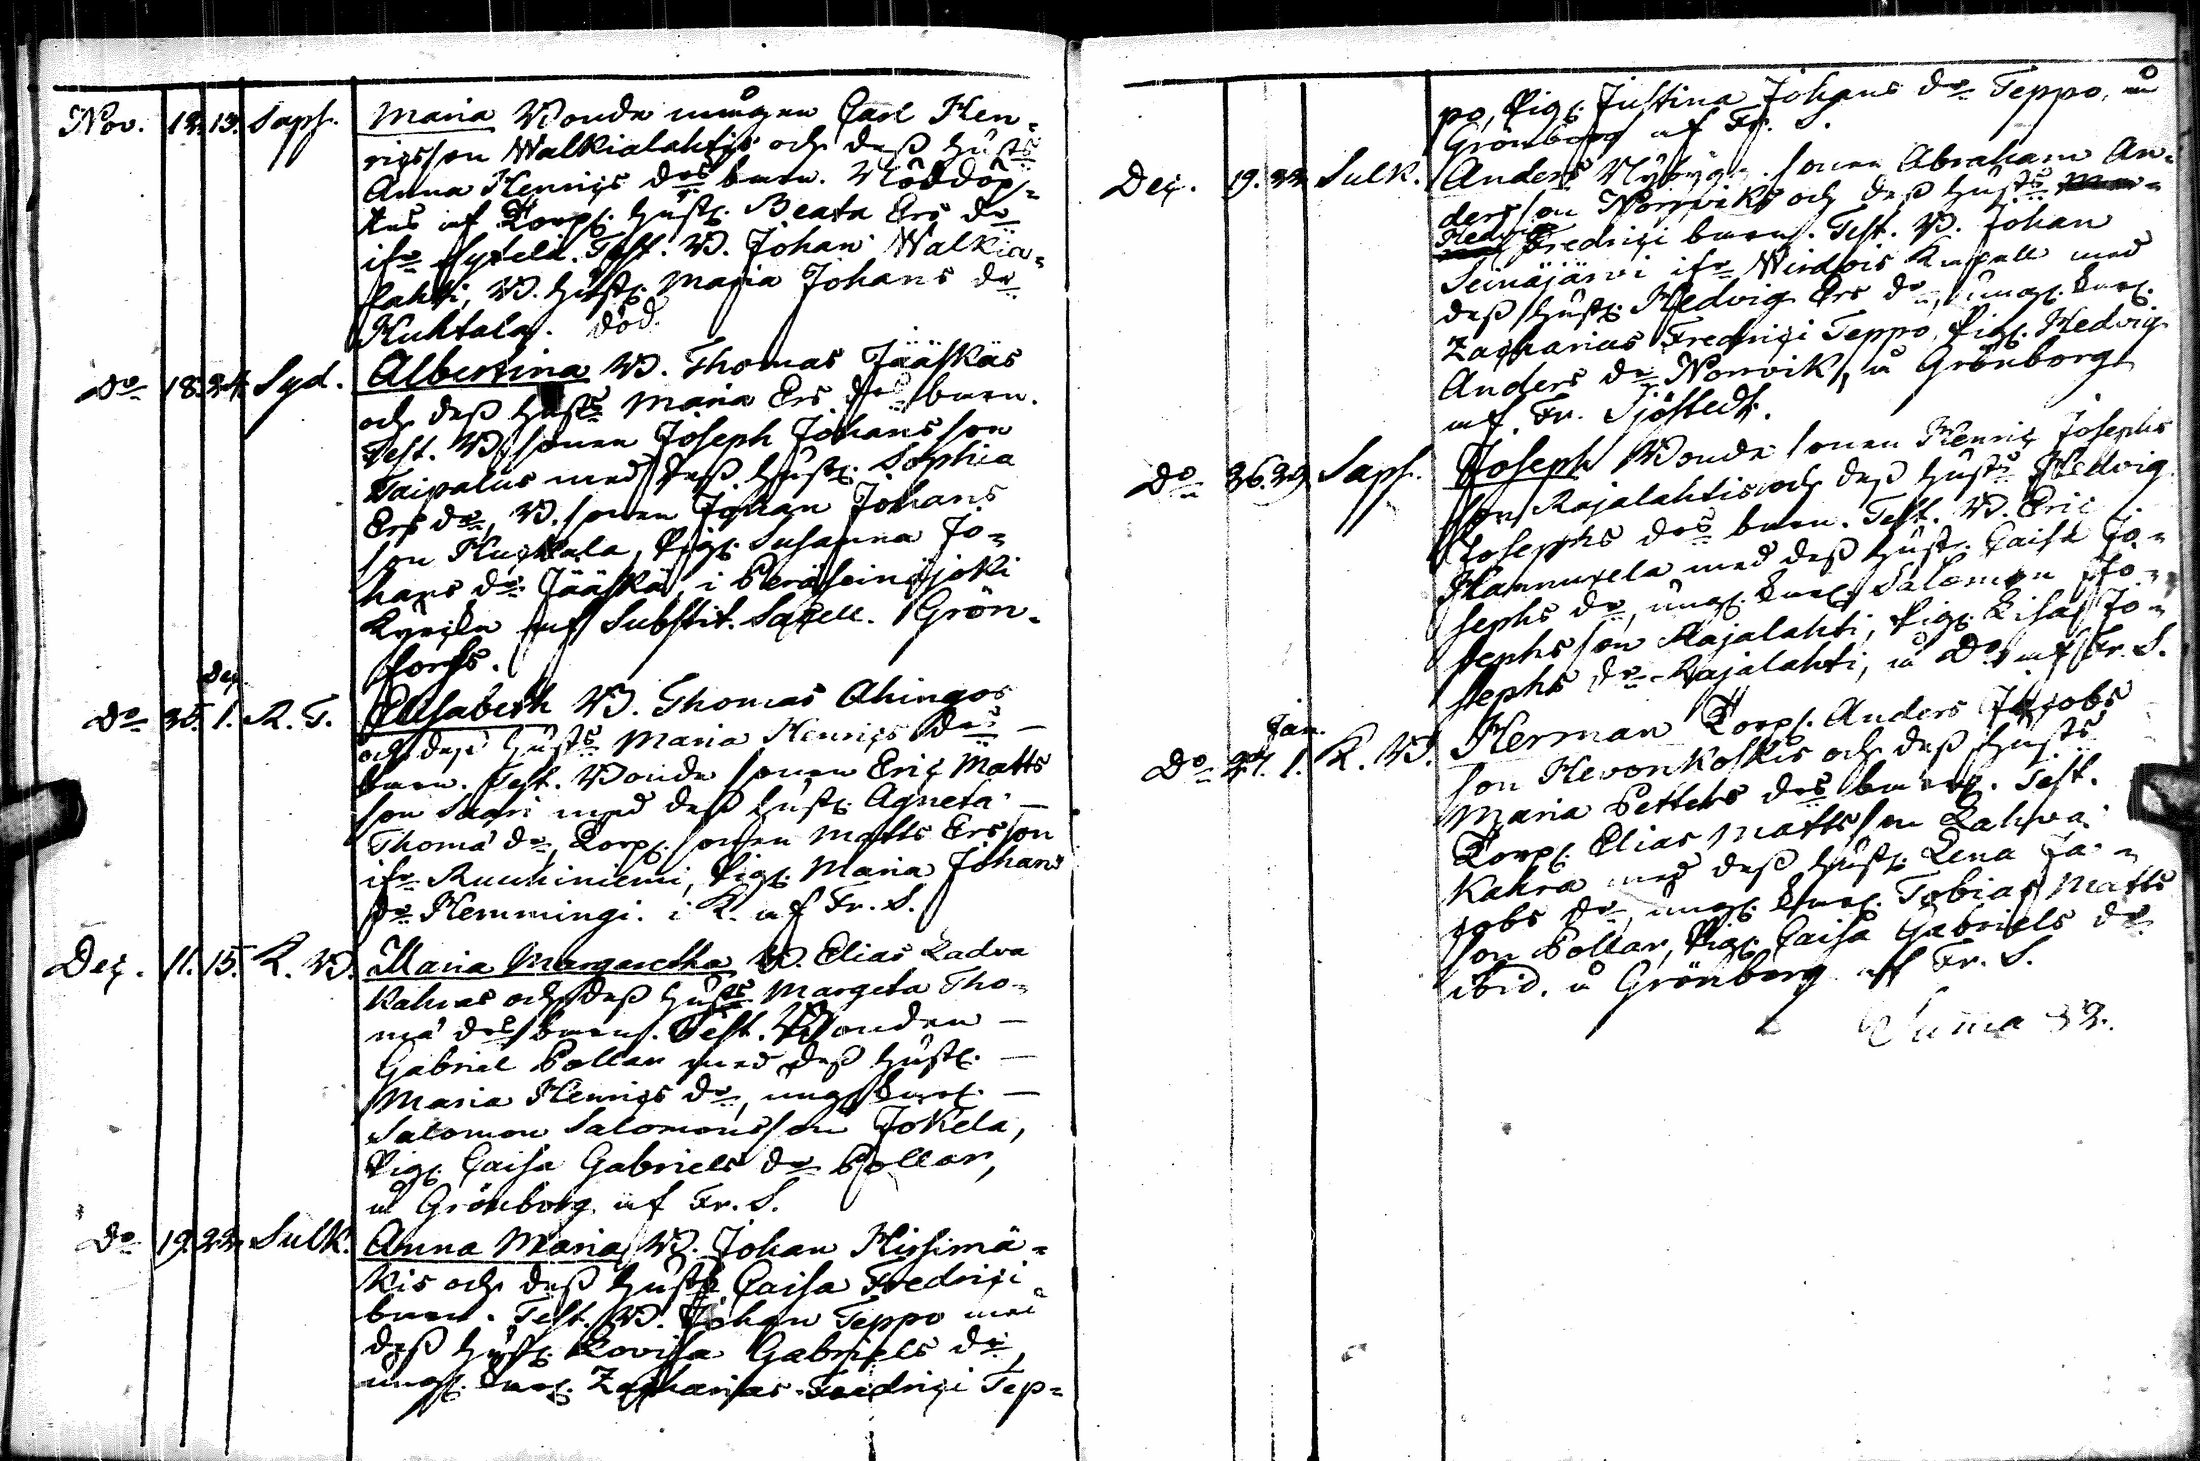 Nov. 12. 13. Saps. Maria Bonde mågen Carl Hen-
ricsson Walkialahtis och deß hust:s
Anna Henrics dr:s barn. Nöddöp-
tes af Torp. hust. Beata Ers dr
ifr. Test. B. Johan Walkia-
lahti, B. hust. Maria Johans dr
Kuhtala. död.
Do 18. 24. Syd. Albertina B. Thomas Jääskäs
och deß hust:s Maria Ers dr:s barn.
Test. B. sonen Joseph Johansson
Taipalus med deß hust. Sophia
Ers dr, B. sonen Johan Johans
son, Pig. Susanna Jo-
hans dr Jääskä, i Peräseinäjoki
Kyrcka af Substit. Sacell. Grön-
fors.
Dec.
Do 30. 1. K. T. Elisabeth B. Thomas Ahingos
och deß hust:s Maria Henrics dr:s
barn. Test. Bonde sonen Eric Matts
son Saari med deß hust. Agneta
Thomæ dr, Torp. sonen Matts Ersson
ifr. Ruuhiniemi, Pig. Maria Johans
dr Hemmingi. i K. af Fr. S.
Dec. 11. 15. K. B. Maria Margaretha B. Elias Ladva
Kahras och deß hust:s Margeta Tho-
mæ dr:s barn. Test. Bonden
Gabriel Pollar med deß hust.
Maria Henrics dr, ung. karl.
Salomon Salomonsson Jokela,
Pig. Caisa Gabriels dr Pollar,
å Grönborg af Fr. S.
Do 19. 22. Sulk. Anna Maria B. Johan Hissimä-
kis och deß hust:s Caisa Fredrici
barn. Test. B. Johan Teppo med
deß hust. Lovisa Gabriels dr,
ung. karl. Zacharias Fredrici Tep-
po, Pig. Justina Johans dr Teppo, å
Grönborg af Fr. S.
Dec. 19. 22. Sulk. Anders Nybyg. sonen Abraham An-
dersson Norrviks och deß hust:s
Hedvig Fredrici barn. Test. B. Johan
Seinäjärvi ifr. Wirdois Kapell med
deß hust. Hedvig Ers dr, ung. karl.
Zacharias Fredrici Teppo, Pig. Hedvig
Anders dr Norvik, å Grönborg
af Fr. Sjöstedt.
Do 26. 29. Saps. Joseph Bonde sonen Henric Josephs
son Rajalahtis och deß hust:s Hedvig
Josephs dr:s barn. Test. B. Eric
Hannuxela med deß hust. Caisa Jo-
sephs dr, ung. karl. Salomon Jo-
sephsson Rajalahti, Pig. Lisa Jo-
sephs dr Rajalahti, å Do af Fr. S.
Jan.
Do 27. 1. K. B. Herman Torp. Anders Jacobs
son Hevonkoskis och deß hust:s
Maria Petters dr:s barn. Test.
Torp. Elias Mattsson
Kahra med deß hust. Lena Ja-
cobs dr, ung. karl. Tobias Matts
son Pollar, Pig. Caisa Gabriels dr
ibid. å Grönborg af Fr. S.
Suma 32.